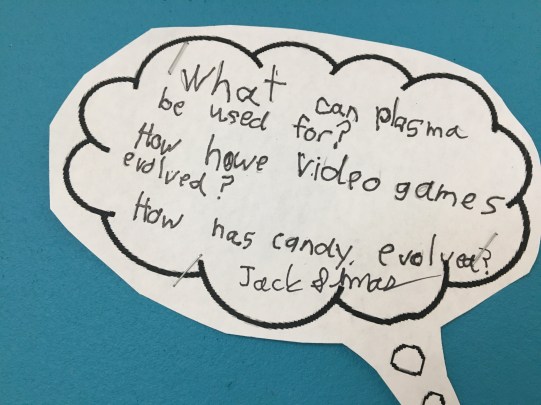 What can plasma
be used for?
How howe video games
evolved?
How has candy evolved?
Jack &